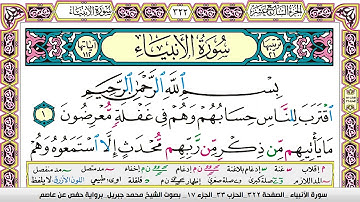 سورة الأنبياء
٣٢٢
سُورَةُ الْأَنْبِيَاءِ
بِسْمِ اللَّهِ الرَّحْمَٰنِ الرَّحِيمِ
اقْتَرَبَ لِلنَّاسِ حِسَابُهُمْ وَهُمْ فِي غَفْلَةٍ مُعْرِضُونَ ١
مَا يَأْتِيهِمْ مِنْ ذِكْرٍ مِنْ رَبِّهِمْ مُحْدَثٍ إِلَّا اسْتَمَعُوهُ وَهُمْ
سورة الأنبياء. الصفحة ٣٢٢. الحزب ٣٣. الجزء ١٧. بصوت الشيخ محمد جبريل. برواية حفص عن عاصم